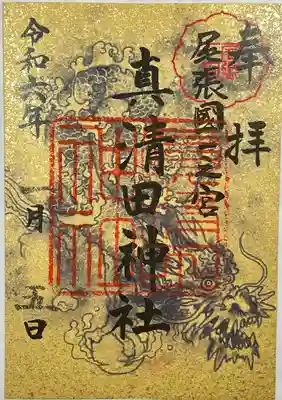 奉拝
尾張國一之宮
真清田神社
令和六年
一月
五日